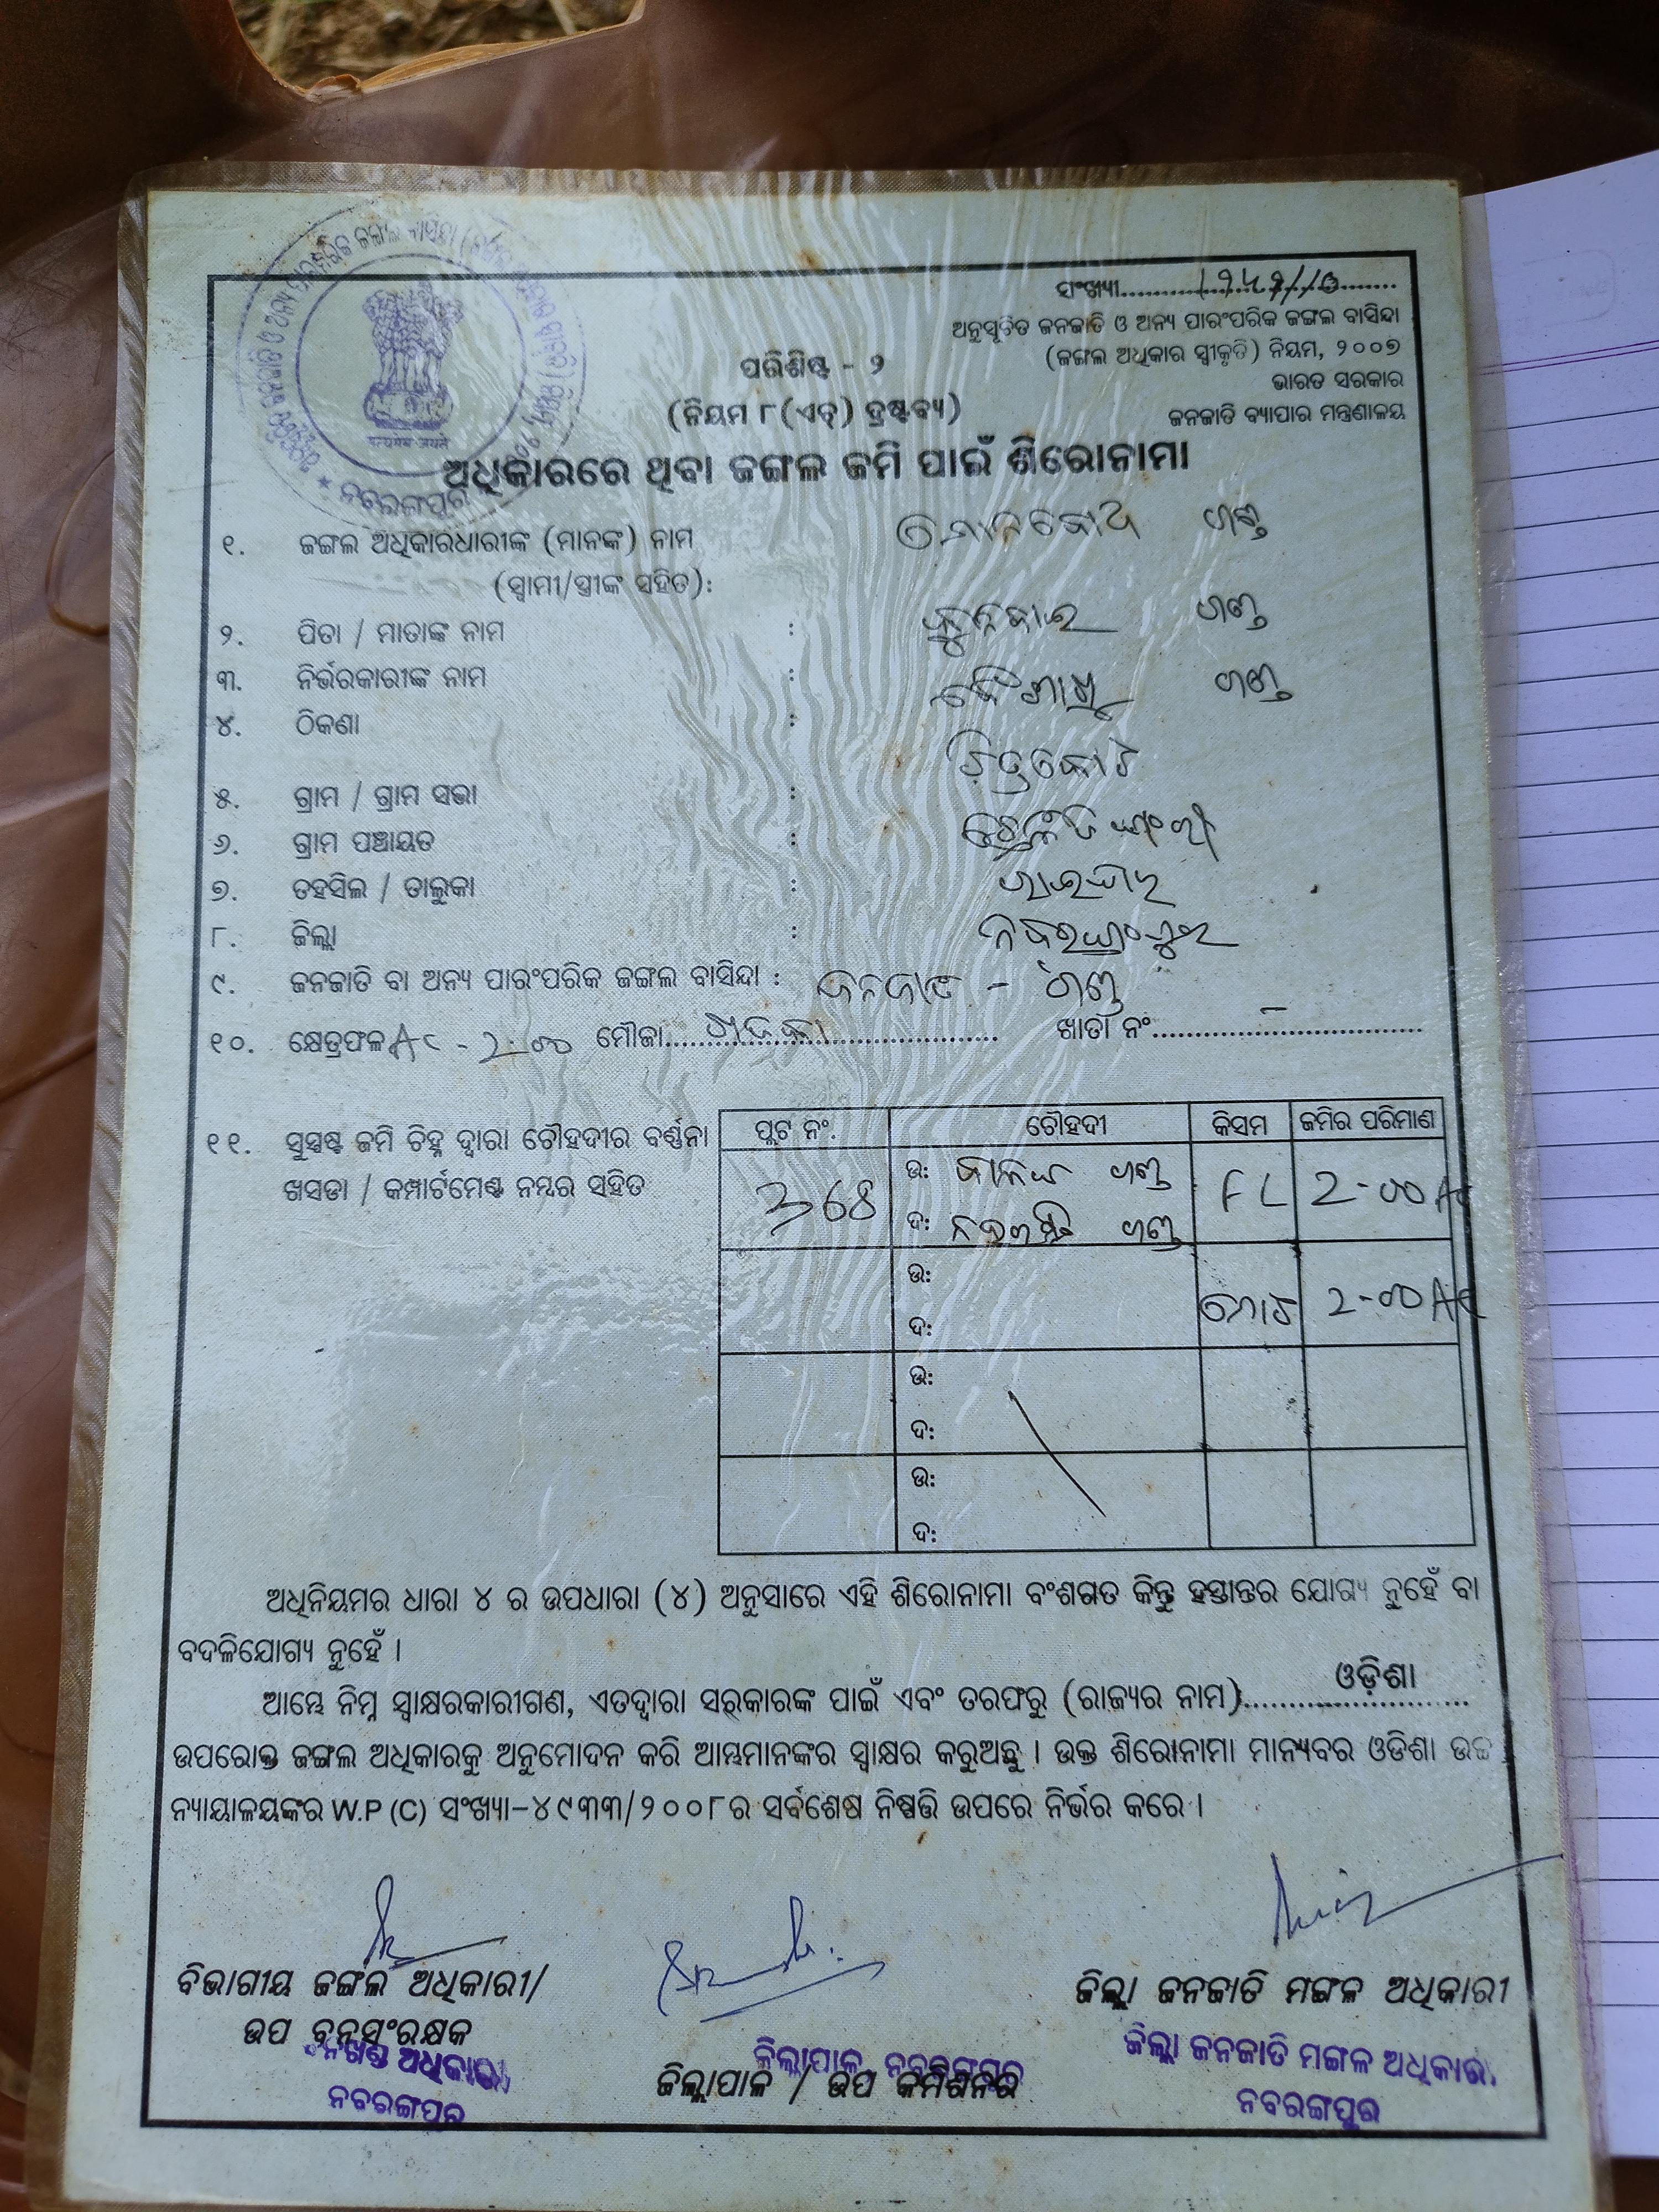 ସଂଖ୍ୟା
ଅନୁସୂଚିତ ଜନଜାତି ଓ ଅନ୍ୟ ପାରଂପରିକ ଜଙ୍ଗଲ ବାସିନ୍ଦା
(ଜଙ୍ଗଲ ଅଧିକାର ସ୍ୱୀକୃତି) ନିୟମ, ୨୦୦୭
ଭାରତ ସରକାର
ଜନଜାତି ବ୍ୟାପାର ମନ୍ତ୍ରଣାଳୟ
ପରିଶିଷ୍ଟ - ୨
(ନିୟମ ୮(ଏଚ୍) ଦ୍ରଷ୍ଟବ୍ୟ)
ଅଧିକାରରେ ଥିବା ଜଙ୍ଗଲ ଜମି ପାଇଁ ଶିରୋନାମା
ନବରଙ୍ଗପୁର
୧. ଜଙ୍ଗଲ ଅଧିକାରଧାରୀଙ୍କ (ମାନଙ୍କ) ନାମ ଗଣ୍ଡ
(ସ୍ୱାମୀ/ସ୍ତ୍ରୀଙ୍କ ସହିତ):
୨. ପିତା / ମାତାଙ୍କ ନାମ : ଗଣ୍ଡ
୩. ନିର୍ଭରକାରୀଙ୍କ ନାମ : ଗଣ୍ଡ
୪. ଠିକଣା :
୫. ଗ୍ରାମ / ଗ୍ରାମ ସଭା :
୬. ଗ୍ରାମ ପଞ୍ଚାୟତ :
୭. ତହସିଲ / ତାଲୁକା : ରାଇଘର
୮. ଜିଲ୍ଲା :
୯. ଜନଜାତି ବା ଅନ୍ୟ ପାରଂପରିକ ଜଙ୍ଗଲ ବାସିନ୍ଦା : ଜନଜାତି - ଗଣ୍ଡ
୧୦. କ୍ଷେତ୍ରଫଳ Ac - 2.00 ମୌଜା ଖାତା ନଂ. –
୧୧. ସୁସ୍ପଷ୍ଟ ଜମି ଚିହ୍ନ ଦ୍ୱାରା ଚୌହଦୀର ବର୍ଣ୍ଣନା
ଖସଡା / କମ୍ପାର୍ଟମେଣ୍ଟ ନମ୍ବର ସହିତ
ପ୍ଲଟ ନଂ. ଚୌହଦୀ କିସମ ଜମିର ପରିମାଣ
368 ଉ: ଗଣ୍ଡ FL 2-00 Ac
ଦ: ଗଣ୍ଡ
ଉ: ମୋଟ 2-00 Ac
ଦ:
ଉ:
ଦ:
ଉ:
ଦ:
ଅଧିନିୟମର ଧାରା ୪ ର ଉପଧାରା (୪) ଅନୁସାରେ ଏହି ଶିରୋନାମା ବଂଶଗତ କିନ୍ତୁ ହସ୍ତାନ୍ତର ଯୋଗ୍ୟ ନୁହେଁ ବା
ବଦଳିଯୋଗ୍ୟ ନୁହେଁ ।
ଆମ୍ଭେ ନିମ୍ନ ସ୍ୱାକ୍ଷରକାରୀଗଣ, ଏତଦ୍ୱାରା ସରକାରଙ୍କ ପାଇଁ ଏବଂ ତରଫରୁ (ରାଜ୍ୟର ନାମ) ଓଡ଼ିଶା
ଉପରୋକ୍ତ ଜଙ୍ଗଲ ଅଧିକାରକୁ ଅନୁମୋଦନ କରି ଆମ୍ଭମାନଙ୍କର ସ୍ୱାକ୍ଷର କରୁଅଛୁ । ଉକ୍ତ ଶିରୋନାମା ମାନ୍ୟବର ଓଡିଶା ଉଚ୍ଚ
ନ୍ୟାୟାଳୟଙ୍କର W.P (C) ସଂଖ୍ୟା-୪୯୩୩/୨୦୦୮ର ସର୍ବଶେଷ ନିଷ୍ପତ୍ତି ଉପରେ ନିର୍ଭର କରେ ।
ବିଭାଗୀୟ ଜଙ୍ଗଲ ଅଧିକାରୀ/
ଉପ ବନସଂରକ୍ଷକ
ବନଖଣ୍ଡ ଅଧିକାରୀ
ନବରଙ୍ଗପୁର
ଜିଲ୍ଲାପାଳ, ନବରଙ୍ଗପୁର
ଜିଲ୍ଲାପାଳ / ଉପ କମିଶନର
ଜିଲ୍ଲା ଜନଜାତି ମଙ୍ଗଳ ଅଧିକାରୀ
ଜିଲ୍ଲା ଜନଜାତି ମଙ୍ଗଳ ଅଧିକାରୀ
ନବରଙ୍ଗପୁର